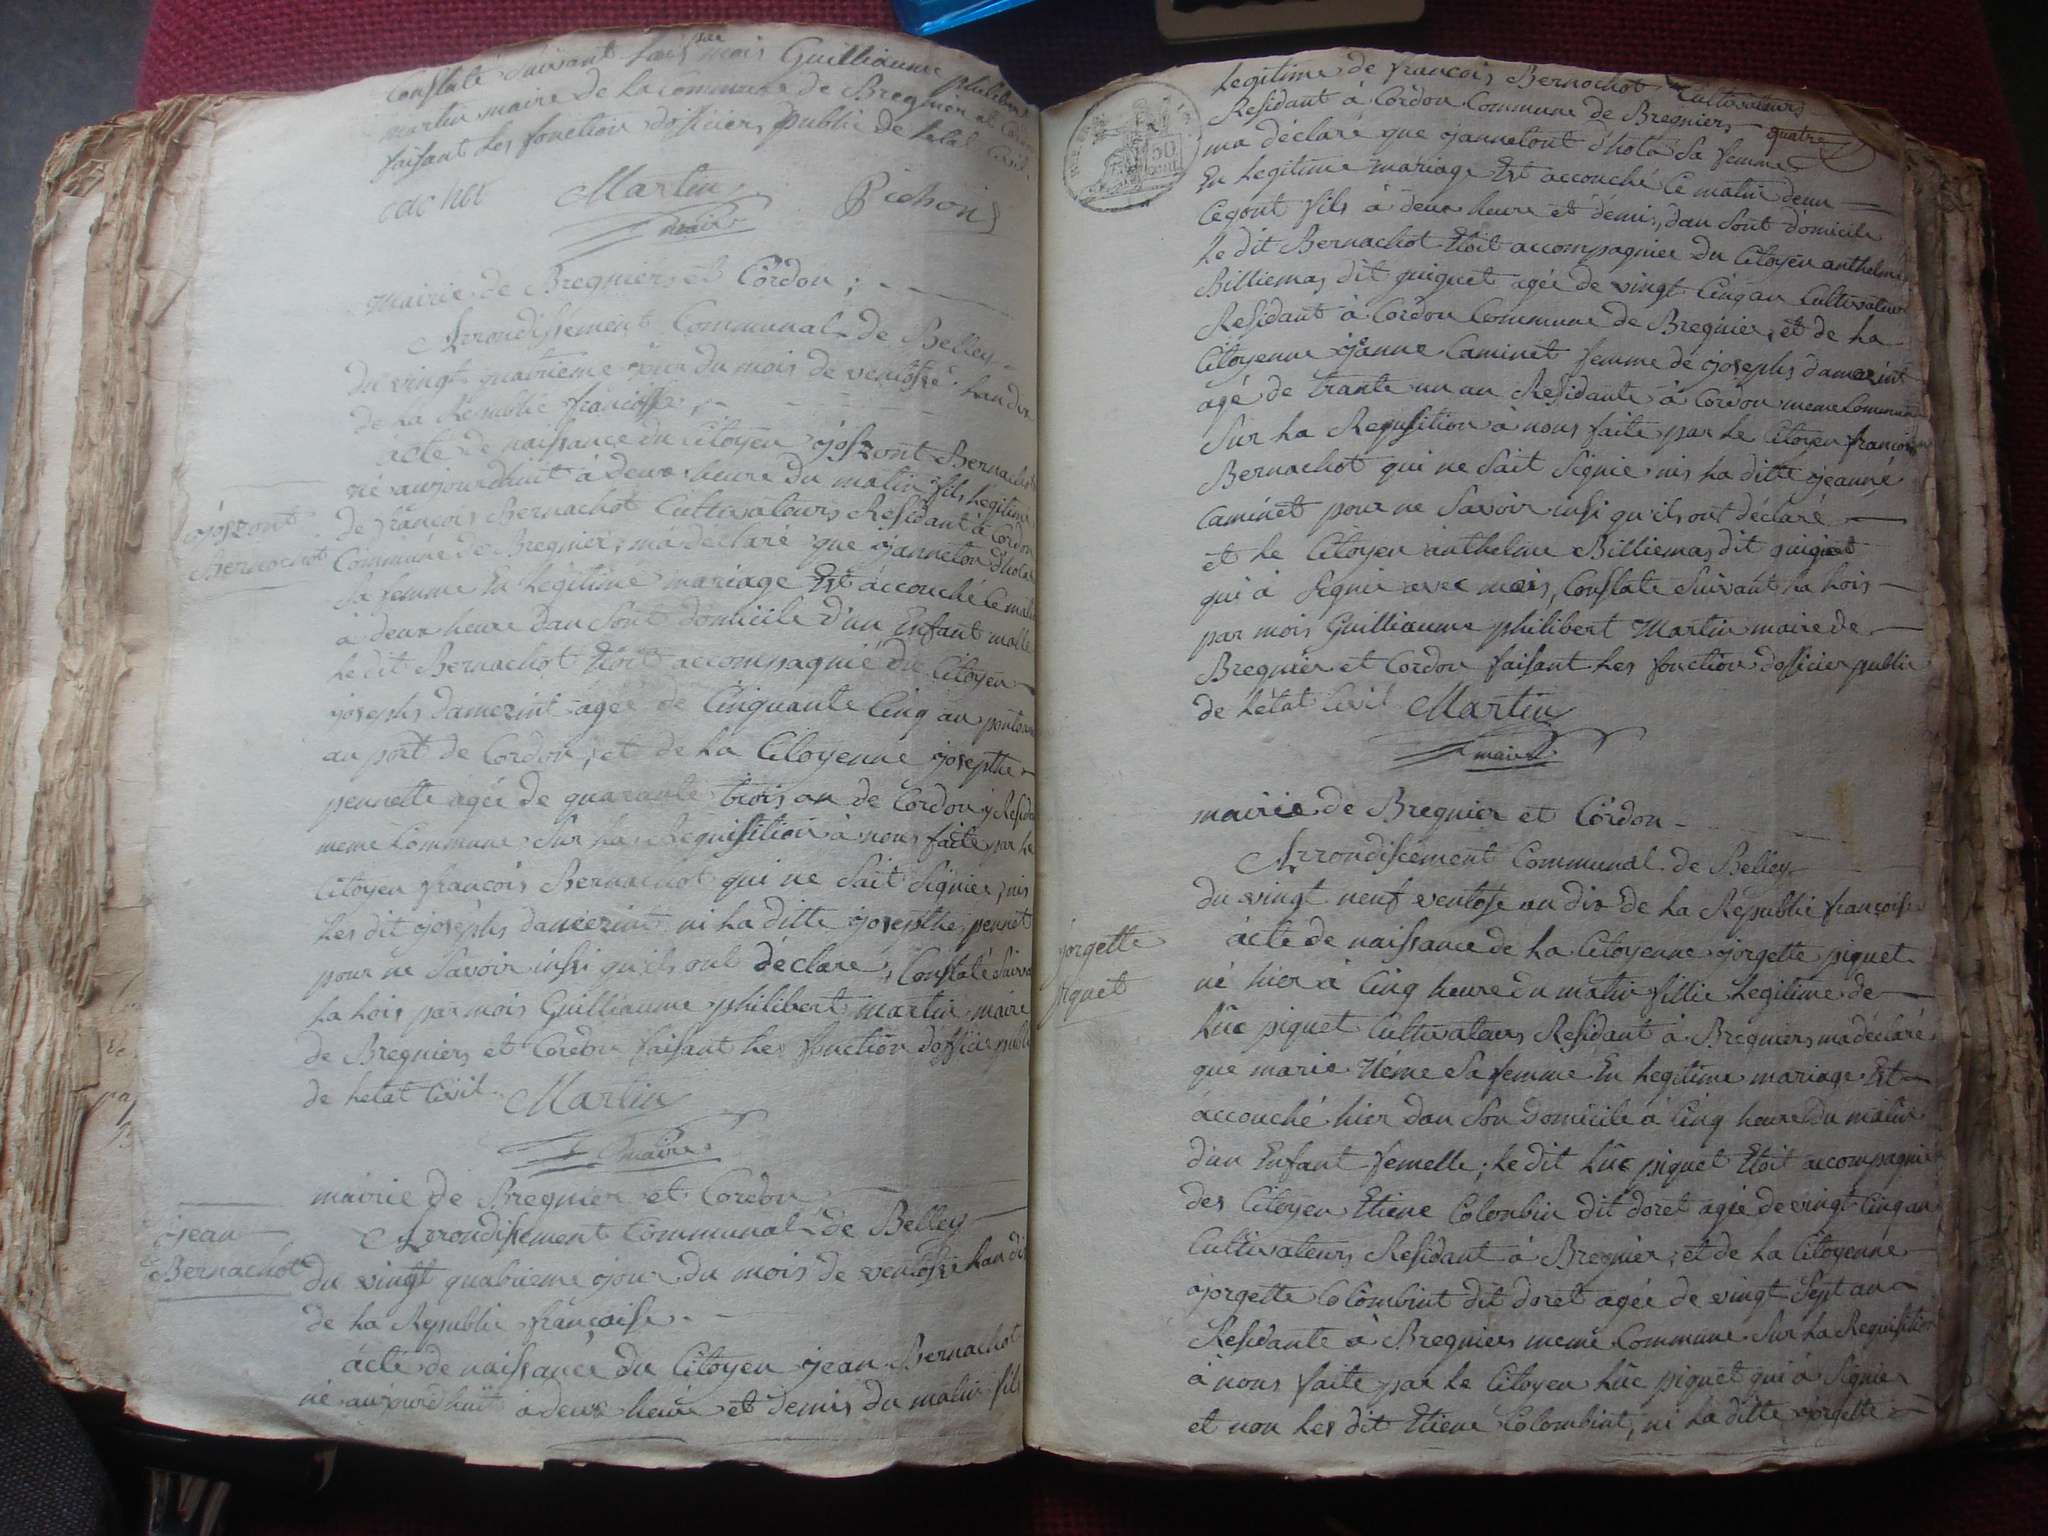 Constaté suivant la loi par mois Guilliaume philibert
martin maire de la commune de Bregnier et Cordon
faisant les fonction dofficier public de letat Civil.
cachet Martin Pichon
maire
Mairie de Bregniers et Cordon ;
Arrondissement Communal de Belley
du vingt quatrieme jour du mois de ventose lan dix
de la Republic françoisse,
acte de naissance du Citoyen joszont Bernachot
né aujourdhuit à deux heure du matin fils legitime
joszont
Bernachot
de françois Bernachot Cultivateurs Residant à Cordon
Commune de Bregnier, ma déclaré que jeanneton dhota
sa femme En Legitime mariage Est accouché Ce matin
à deux heure dan sont domicile d'un Enfant malle
le dit Bernachot Etoit accompagnié du Citoyen
josephs damezint agée de Cinquante Cinq an
au port de Cordon, et de la Citoyenne josepthe
pennette agée de quarante trois an de Cordon y Resida
meme Commune sur la Requisition à nous faite par le
Citoyen françois Bernachot qui ne sait signier, nis
les dit josephs damezint ni la ditte josepthe pennet
pour ne savoir insi qu'ils ont déclaré, Constaté suiva
la lois par mois Guilliaume philibert martin maire
de Bregniers et Cordon faisant les fonction dofficier publi
de letat Civil. Martin
maire
mairie de Bregnier et Cordon
Arrondissement Communal de Belley
jean
Bernachot
du vingt quatrieme jour du mois de ventose lan dix
de la Republic françoisse.
acte de naissance du Citoyen jean Bernachot
né aujourdhuit à deux heure et demis du matin fils
legitime de françois Bernachot Cultivateurs
Residant à Cordon Commune de Bregniers quatre
ma déclaré que jannetont d'hota sa femme
En Legitime mariage Est accouché Ce matin deun
Cegont fils à deux heure et demis, dan sont domicile
50
le dit Bernachot Etoit accompagnier du Citoyen anthelme
Billiemas dit guiguet agée de vingt Cinq an Cultivateur
Residant à Cordon Commune de Bregnier, et de la
Citoyenne jeanne Caminet femme de josephs damezint
agé de trante un an Residante à Cordon meme Commune
sur la Requsition à nous faite par le Citoyen françois
Bernachot qui ne sait signie nis la ditte jeanne
Caminet pour ne savoir insi qu'ils ont déclaré
et le Citoyen anthelme Billiemas dit guiguet
qui à signié avec mois, Constate suivant la lois
par mois Guilliaume philibert Martin maire de
Bregnier et Cordon faisant les fonction dofficier public
de letat Civil Martin
maire
mairie de Bregnier et Cordon
Arrondissement Communal de Belley
du vingt neuf ventose an dix de la Republic françoise
jorgette
piquet
acte de naissance de la Citoyenne jorgette piquet
né hier à Cinq heure du matin fillie legitime de
Lûc piquet Cultivateurs Residant à Bregniers ma déclaré
que marie sa femme En legitime mariage Est
accouché hier dan son domicile à Cinq heure du matin
d'un Enfant femelle ; le dit Lûc piquet Etoit accompagnier
des Citoyen Etiene Colonbin dit doret agée de vingt Cinq an
Cultivateurs Residant à Bregnier, et de la Citoyenne
jorgette Colombint dit doret agée de vingt sept an
Residante à Bregniers meme Commune sur la Requisition
à nous faite par le Citoyen Lûc piquet qui à signier
et non les dit Etiene Colombint, ni la ditte jorgette